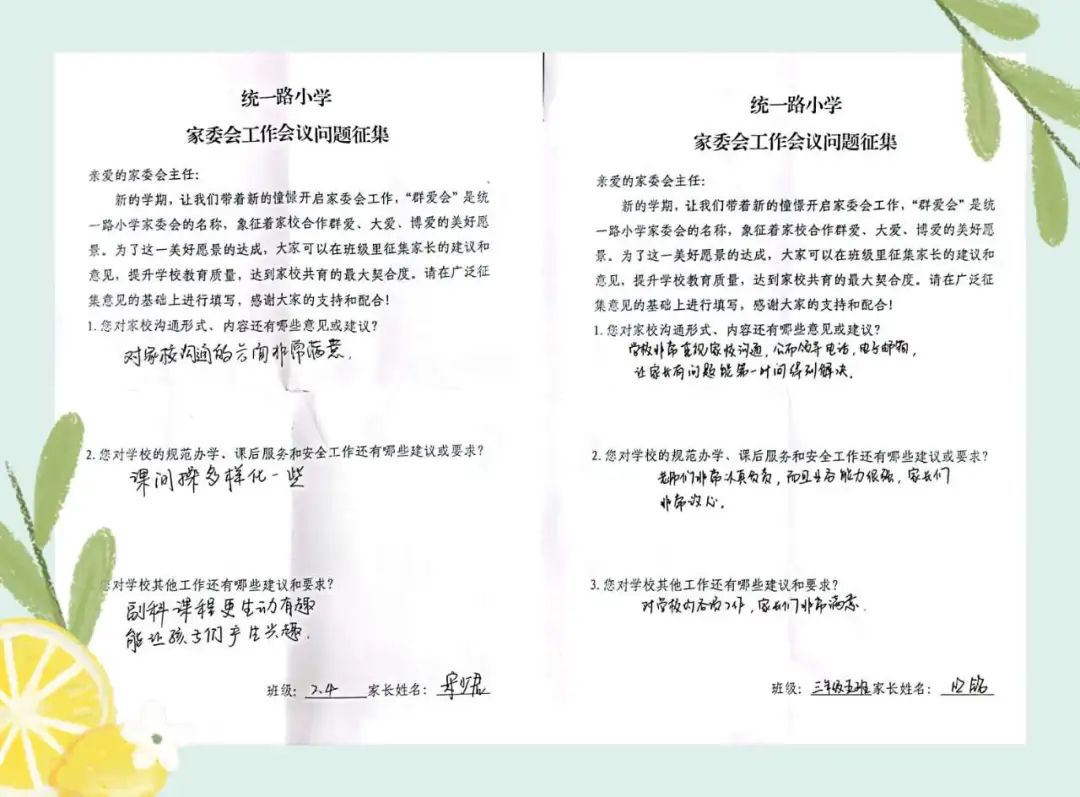 统一路小学
家委会工作会议问题征集
亲爱的家委会主任：
新的学期，让我们带着新的憧憬开启家委会工作，“群爱会”是统
一路小学家委会的名称，象征着家校合作群爱、大爱、博爱的美好愿
景。为了这一美好愿景的达成，大家可以在班级里征集家长的建议和
意见，提升学校教育质量，达到家校共育的最大契合度。请在广泛征
集意见的基础上进行填写，感谢大家的支持和配合！
1.您对家校沟通形式、内容还有哪些意见或建议？
对家校沟通的方面非常满意.
2.您对学校的规范办学、课后服务和安全工作还有哪些建议或要求？
课间操多样化一些
您对学校其他工作还有哪些建议和要求？
副科课程更生动有趣
能让孩子们产生兴趣.
班级：2.4 家长姓名：
统一路小学
家委会工作会议问题征集
亲爱的家委会主任：
新的学期，让我们带着新的憧憬开启家委会工作，“群爱会”是统
一路小学家委会的名称，象征着家校合作群爱、大爱、博爱的美好愿
景。为了这一美好愿景的达成，大家可以在班级里征集家长的建议和
意见，提升学校教育质量，达到家校共育的最大契合度。请在广泛征
集意见的基础上进行填写，感谢大家的支持和配合！
1.您对家校沟通形式、内容还有哪些意见或建议？
学校非常重视家校沟通，公布领导电话，电子邮箱，
让家长有问题能第一时间得到解决.
2.您对学校的规范办学、课后服务和安全工作还有哪些建议或要求？
老师们非常认真负责，而且业务能力很强，家长们
非常放心.
3.您对学校其他工作还有哪些建议和要求？
对学校的各项工作，家长们非常满意.
班级：三年级五班 家长姓名：